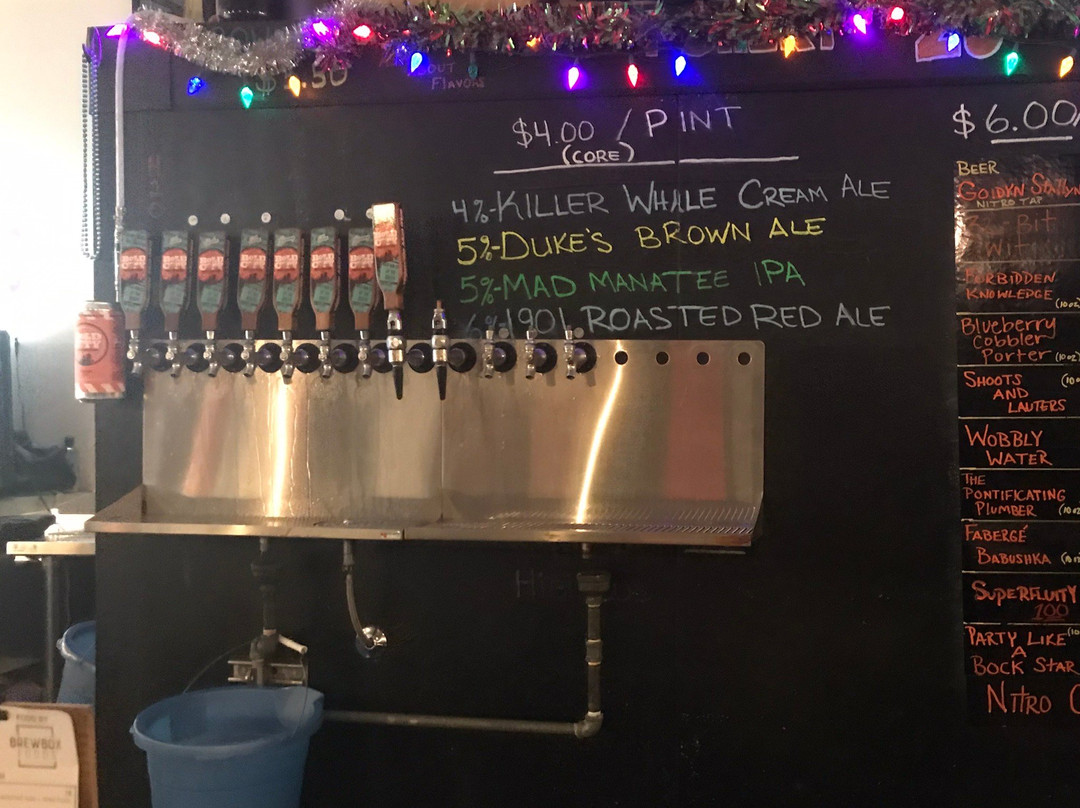 $ .50
OUT
FLAVORS
20
$4.00 / PINT
(CORE)
4%-KILLER WHALE CREAM ALE
5%-DUKE'S BROWN ALE
5%-MAD MANATEE IPA
6%-1901 ROASTED RED ALE
$6.00/
BEER
GOLDEN STALLYN
NITRO TAP
FORBIDDEN
KNOWLEDGE (10oz)
BLUEBERRY
COBBLER
PORTER (10oz)
SHOOTS
AND
LAUTERS
WOBBLY
WATER
THE
PONTIFICATING
PLUMBER
FABERGÉ
BABUSHKA
SUPERFLUITY
100
PARTY LIKE
A
BOCK STAR
NITRO C
FOOD BY
BREWBOX